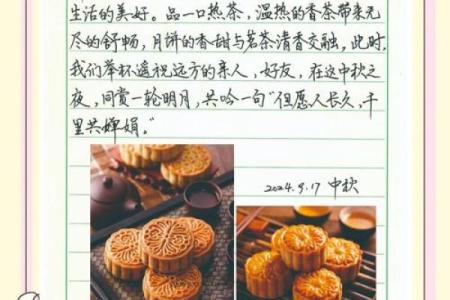 生活的美好。品一口热茶，温热的香茶带来无
尽的舒畅，月饼的香甜与茗茶清香交融。此时，
我们举杯遥祝远方的亲人，好友，在这中秋之
夜，同赏一轮明月，共吟一句“但愿人长久，千
里共婵娟。”
2024.9.17 中秋